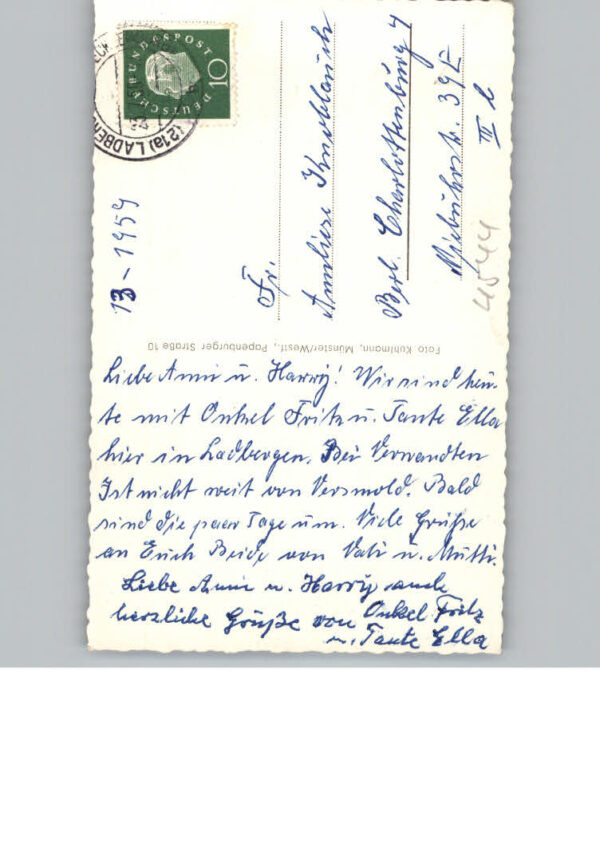 DEUTSCHE BUNDESPOST
10
(21a) LADBER
13-1959
Fr.
Anneliese Knoblauch
Berl. Charlottenburg 4
Niebuhrstr. 39E
III l
4544
Foto Kuhlmann, Münster/Westf., Papenburger Straße 10
Liebe Anni u. Harry! Wir sind heu-
te mit Onkel Fritz u. Tante Ella
hier in Ladbergen. Bei Verwandten
Ist nicht weit von Versmold. Bald
sind die paar Tage um. Viele Grüße
an Euch Beide von Vati u. Mutti.
Liebe Anni u. Harry auch
herzliche Grüße von Onkel Fritz
u. Tante Ella